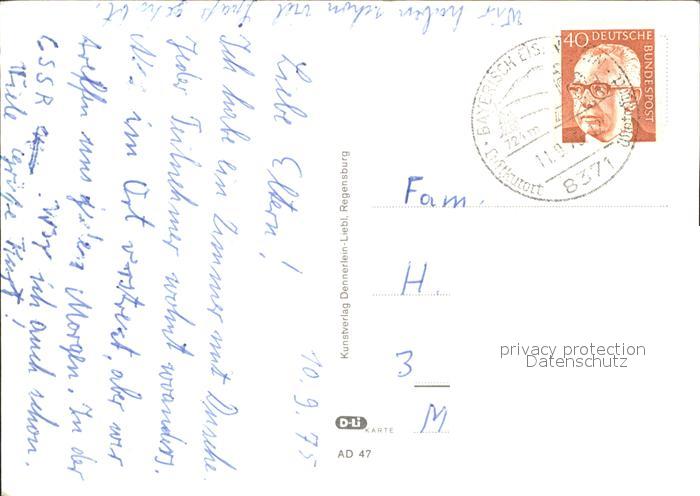 10.9.75
Liebe Eltern!
Ich habe ein Zimmer mit Dusche.
Jeder Teilnehmer wohnt woanders.
im Ort verstreut, aber wir
treffen uns jeden Morgen. In der
CSSR war ich auch schon.
Viele Grüße
Wir haben schon viel Spaß gehabt.
Kunstverlag Dennerlein-Liebl, Regensburg
D-Li KARTE
AD 47
40 DEUTSCHE
BUNDESPOST
BAYERISCH EIS
724 m
11.9.75
Luftkurort
8371
Fam.
H.
3
M
privacy protection
Datenschutz